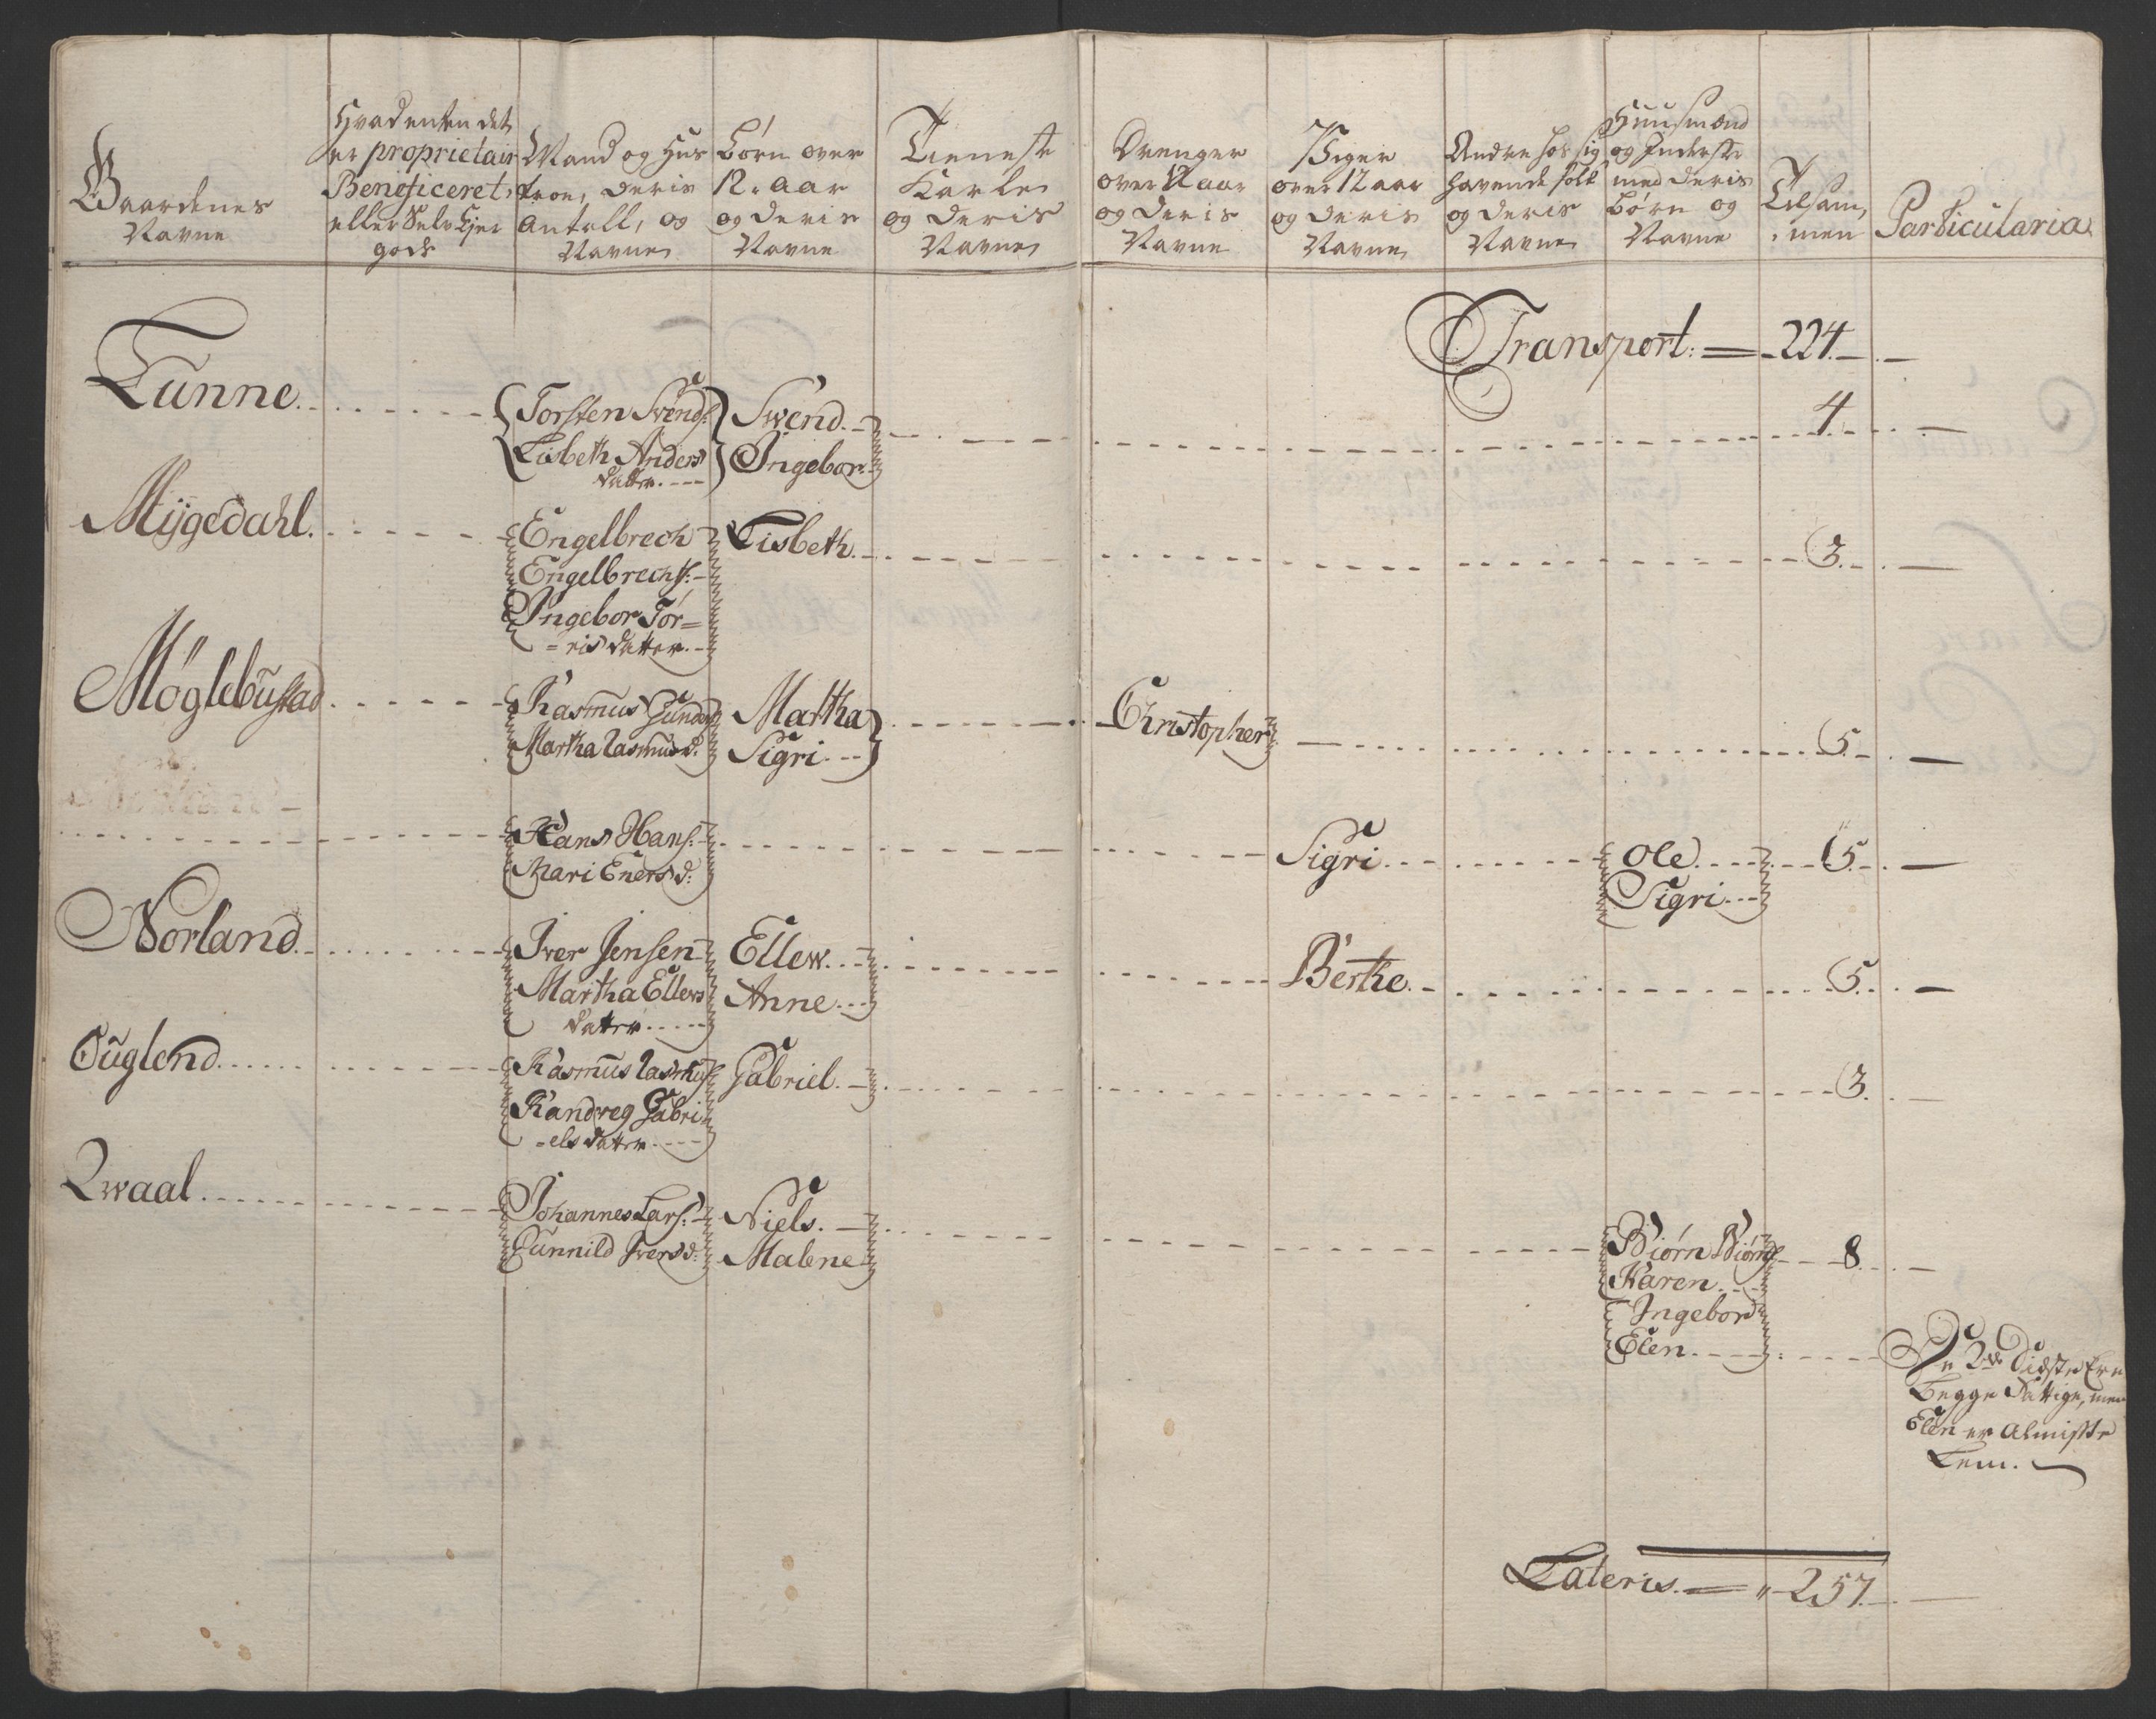 Gaardenes
Navne
Hvadenten det
er proprietair
Beneficeret,
eller Selv Ejer
gods
Mand og Hus
troe, Deris
Antall, og
Navne
Børn over
12. aar
og Deris
Navne
Tieneste
Karle
og Deris
Navne
Drenger
over 12 aar
og Deris
Navne
Piger
over 12 aar
og Deris
Navne
Andre hos sig
havende folk
og Deris
Navne
Huusmænd
og Inderste
med Deris
Børn og
Navne
Tilsam,
men
Particularia
Transport: = 224.
Lunne
Torsten Svends:
Lisbeth Anders
datter
Swend
Ingebor
4
Mygedahl
Engelbrech
Engelbrechs:
Ingebor Tor=
=ris datter
Lisbeth
3
Møglebustad
Rasmus Gunders
Martha Rasmusd:
Martha
Sigri
Christopher
5
Hans Hans:
Mari Enersd:
Sigri
Ole
Sigri
5
Norland
Iver Jensen
Martha Ellews
datter
Ellew
Anne
Berthe
5
Ouglend
Rasmus Rasmus:
Randweg Gabri
=els datter
Gabriel
3
Qwaal
Johannes Lars:
Gunnild Iversd:
Niels
Malene
Biørn Biørns:
Karen
Ingebord
Elen
8
De 2de Sidste Ere
Begge Fattige, men
Elen er Almisse
Lem.
Lateris = 257